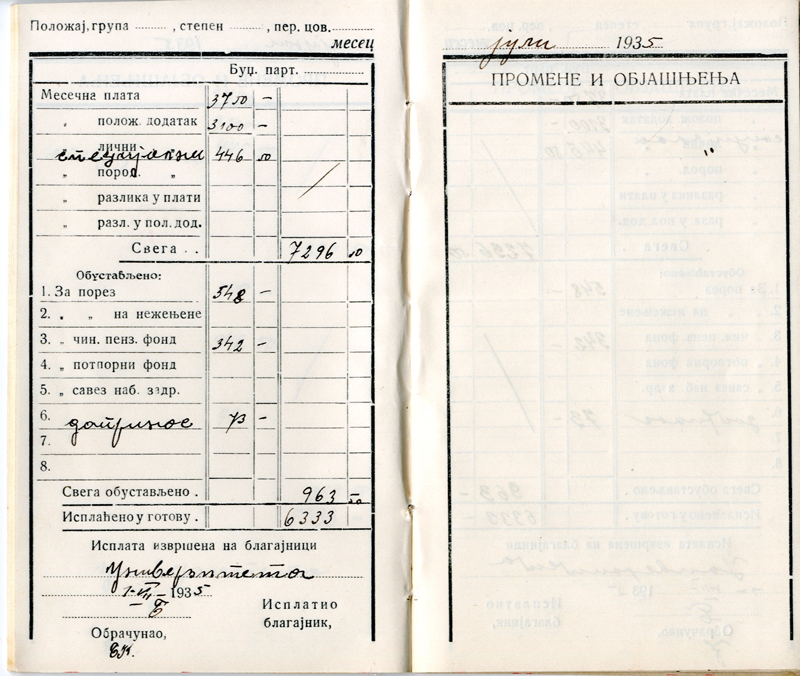 Положај, група , степен , пер. цов.
месец јули 1935
Буџ. парт.
Месечна плата 3750 –
„ полож. додатак 3100 –
„ лични
специјални 446 50
„ пород. „
„ разлика у плати
„ разл. у пол. дод.
Свега . . 7296 50
Обустављено:
1. За порез 548 –
2. „ „ на нежењене
3. „ чин. пенз. фонд 342 –
4. „ потпорни фонд
5. „ савез наб. здр.
6. допринос 73 –
7.
8.
Свега обустављено . 963 50
Исплаћено у готову. 6333
Исплата извршена на благајници
Универзитета
1-VII- 1935
Исплатио
благајник,
Обрачунао,
ПРОМЕНЕ И ОБЈАШЊЕЊА
"